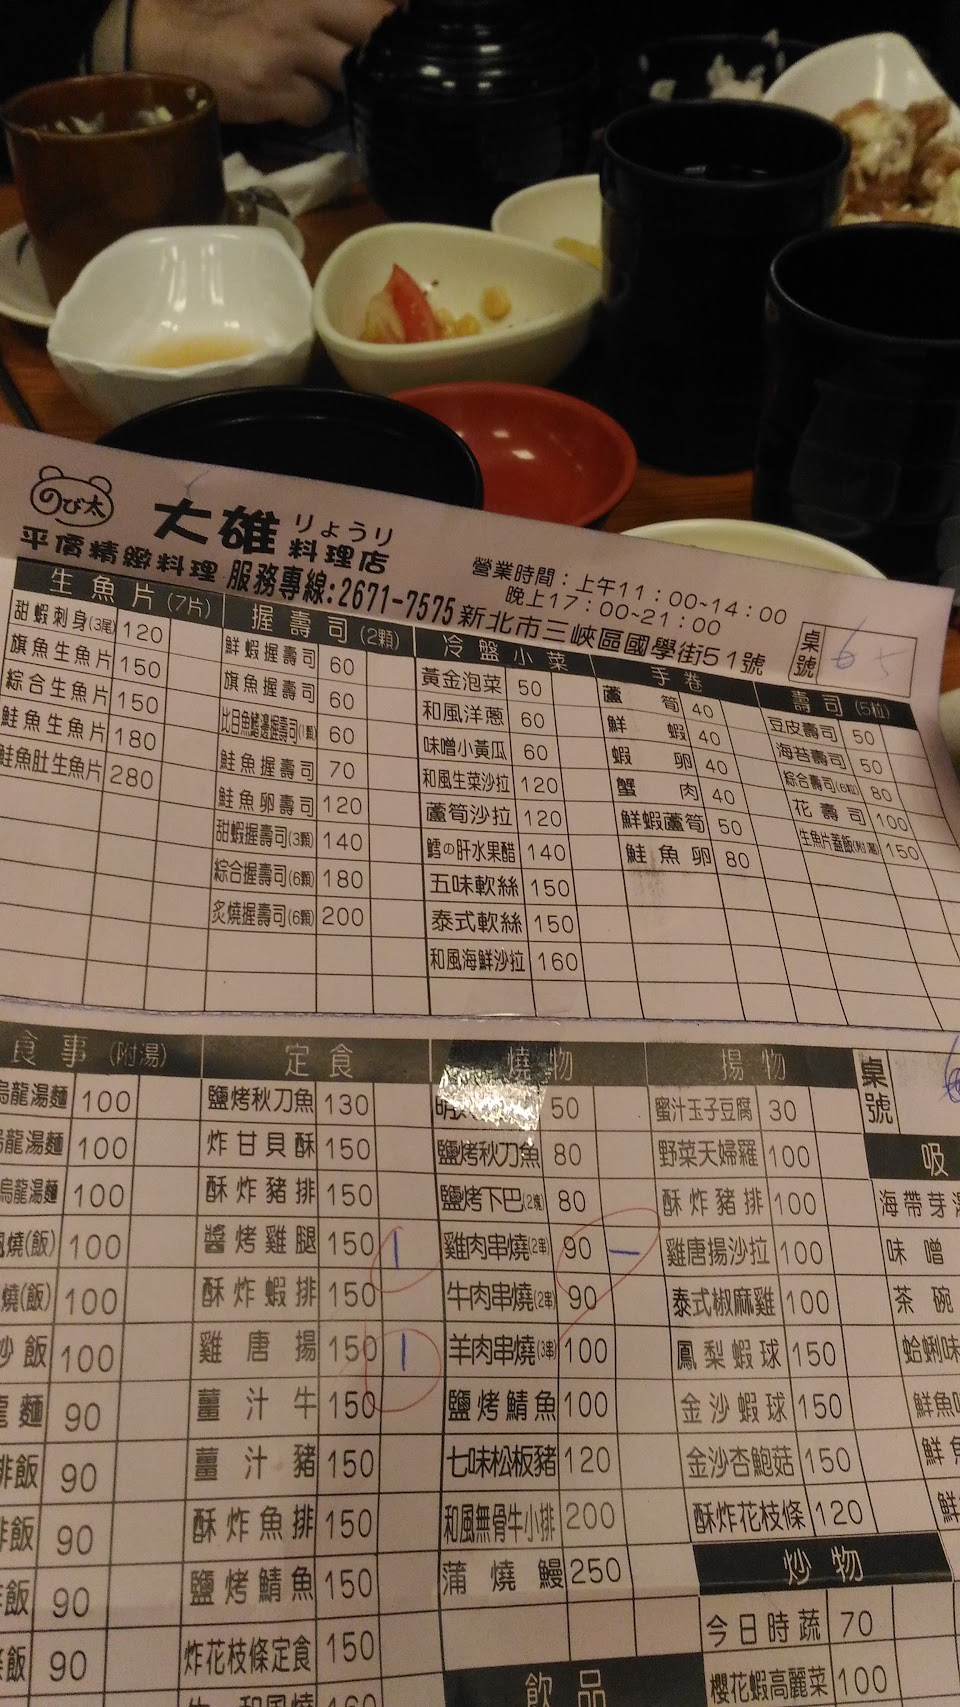 のび太
大雄
りょうり
料理店
平價精緻料理 服務專線:2671-7575
營業時間：上午11：00~14：00
晚上17：00~21：00
新北市三峽區國學街51號
桌號 65
生魚片(7片)
甜蝦刺身(3尾) 120
旗魚生魚片 150
綜合生魚片 150
鮭魚生魚片 180
鮭魚肚生魚片 280
握壽司(2顆)
鮮蝦握壽司 60
旗魚握壽司 60
比目魚鰭邊握壽司(1顆) 60
鮭魚握壽司 70
鮭魚卵壽司 120
甜蝦握壽司(3顆) 140
綜合握壽司(6顆) 180
炙燒握壽司(6顆) 200
冷盤小菜
黃金泡菜 50
和風洋蔥 60
味噌小黃瓜 60
和風生菜沙拉 120
蘆筍沙拉 120
鱈の肝水果醋 140
五味軟絲 150
泰式軟絲 150
和風海鮮沙拉 160
手卷
蘆筍 40
鮮蝦 40
蝦卵 40
蟹肉 40
鮮蝦蘆筍 50
鮭魚卵 80
壽司(5粒)
豆皮壽司 50
海苔壽司 50
綜合壽司(6粒) 80
花壽司 100
生魚片蓋飯(附湯) 150
食事(附湯)
烏龍湯麵 100
烏龍湯麵 100
烏龍湯麵 100
燒(飯) 100
燒(飯) 100
炒飯 100
龍麵 90
排飯 90
排飯 90
飯 90
飯 90
定食
鹽烤秋刀魚 130
炸甘貝酥 150
酥炸豬排 150
醬烤雞腿 150 1
酥炸蝦排 150
雞唐揚 150 1
薑汁牛 150
薑汁豬 150
酥炸魚排 150
鹽烤鯖魚 150
炸花枝條定食 150
160
燒物
50
鹽烤秋刀魚 80
鹽烤下巴(2塊) 80
雞肉串燒(2串) 90 一
牛肉串燒(2串) 90
羊肉串燒(3串) 100
鹽烤鯖魚 100
七味松板豬 120
和風無骨牛小排 200
蒲燒鰻 250
飲品
揚物
蜜汁玉子豆腐 30
野菜天婦羅 100
酥炸豬排 100
雞唐揚沙拉 100
泰式椒麻雞 100
鳳梨蝦球 150
金沙蝦球 150
金沙杏鮑菇 150
酥炸花枝條 120
炒物
今日時蔬 70
櫻花蝦高麗菜 100
桌號
吸
海帶芽湯
味噌
茶碗
蛤蜊味
鮮魚味
鮮魚
鮮